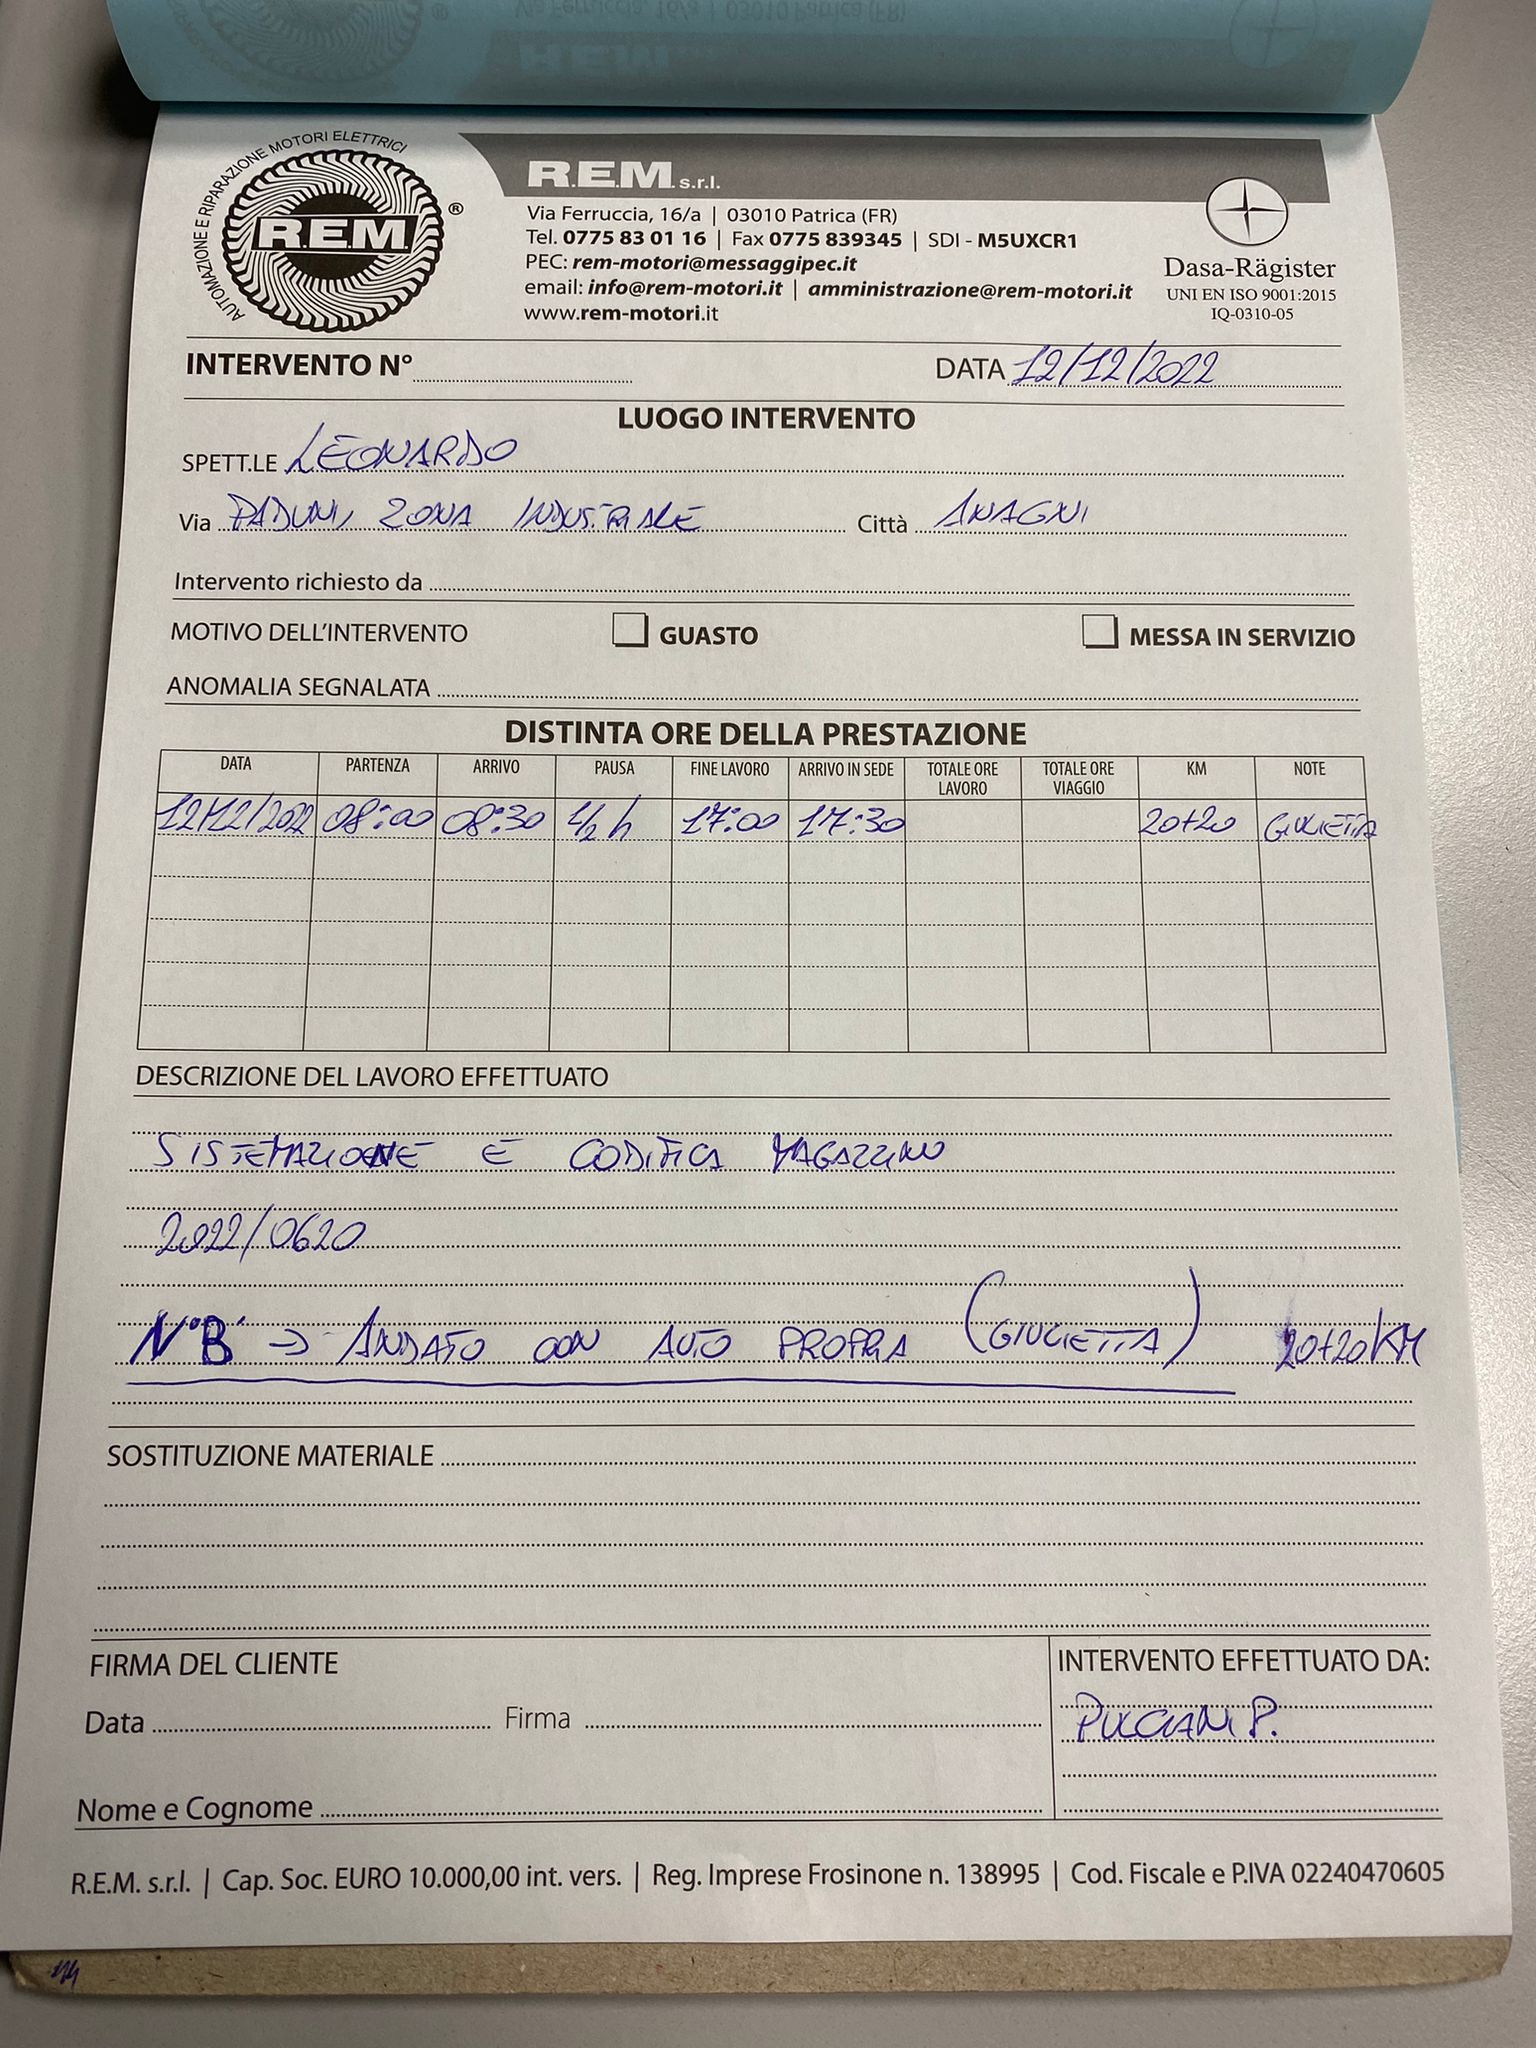 AUTOMAZIONE E RIPARAZIONE MOTORI ELETTRICI
R.E.M. ®
R.E.M. s.r.l.
Via Ferruccia, 16/a | 03010 Patrica (FR)
Tel. 0775 83 01 16 | Fax 0775 839345 | SDI - M5UXCR1
PEC: rem-motori@messaggipec.it
email: info@rem-motori.it | amministrazione@rem-motori.it
www.rem-motori.it
Dasa-Rägister
UNI EN ISO 9001:2015
IQ-0310-05
INTERVENTO N° DATA 12/12/2022
LUOGO INTERVENTO
SPETT.LE LEONARDO
Via PADUNI, ZONA INDUSTRIALE Città ANAGNI
Intervento richiesto da
MOTIVO DELL'INTERVENTO GUASTO MESSA IN SERVIZIO
ANOMALIA SEGNALATA
DISTINTA ORE DELLA PRESTAZIONE
DATA PARTENZA ARRIVO PAUSA FINE LAVORO ARRIVO IN SEDE TOTALE ORE LAVORO TOTALE ORE VIAGGIO KM NOTE
12/12/2022 08:00 08:30 1/2 h 17:00 17:30 20+20 GIULIETTA
DESCRIZIONE DEL LAVORO EFFETTUATO
SISTEMAZIONE E CODIFICA MAGAZZINO
2022/0620
N°B° → ANDATO CON AUTO PROPRIA (GIULIETTA) 20+20 KM
SOSTITUZIONE MATERIALE
FIRMA DEL CLIENTE
INTERVENTO EFFETTUATO DA:
Data Firma
PULCIANI P.
Nome e Cognome
R.E.M. s.r.l. | Cap. Soc. EURO 10.000,00 int. vers. | Reg. Imprese Frosinone n. 138995 | Cod. Fiscale e P.IVA 02240470605